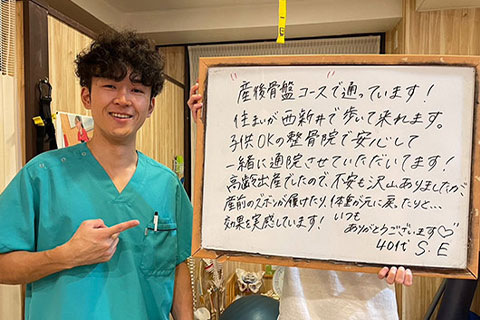 "産後骨盤コース"で通っています！
住まいが西新井で歩いて来れます。
子供OKの整骨院で安心して
一緒に通院させていただいてます！
高齢出産でしたので、不安も沢山ありましたが、
産前のズボンが履けたり、体重が元に戻ったりと…
効果を実感しています！
いつも
ありがとうございます♡"
40代 S.E